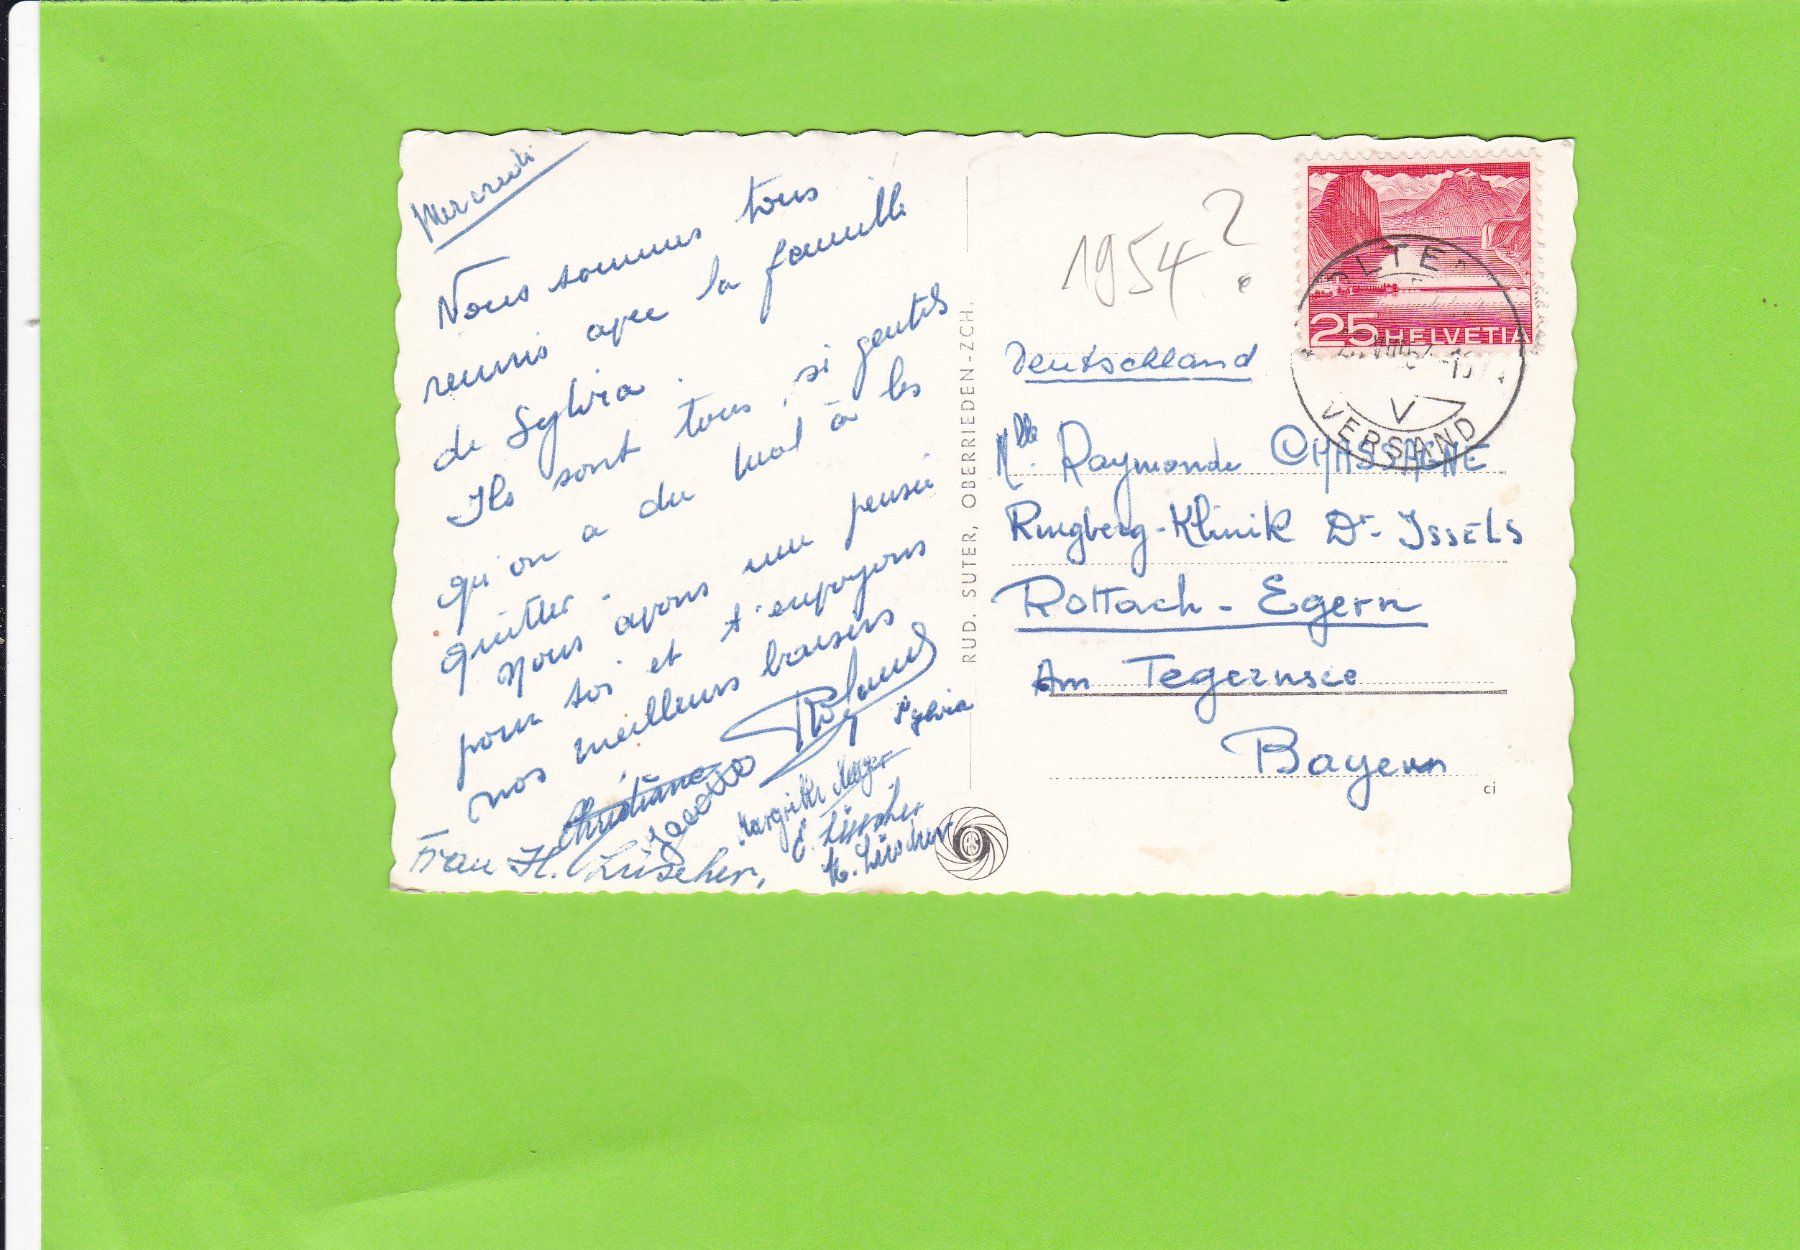 Mercredi
Nous sommes tous
reunis avec la famille
de Sylvia.
Ils sont tous, si gentils
qu'on a du mal à les
quitter.
Nous avons une pensée
pour toi et t'envoyons
nos meilleurs baisers
Roland
Sylvia
Christiane
Margrith
E. Lüscher
K. Lüscher
Frau H. Lüscher,
RUD. SUTER, OBERRIEDEN-ZCH.
1954?
25 HELVETIA
OLTEN
VERSAND
Deutschland
Mlle. Raymonde CHASSAGNE
Ringberg-Klinik Dr. ISSELS
Rottach-Egern
Am Tegernsee
Bayern
ci